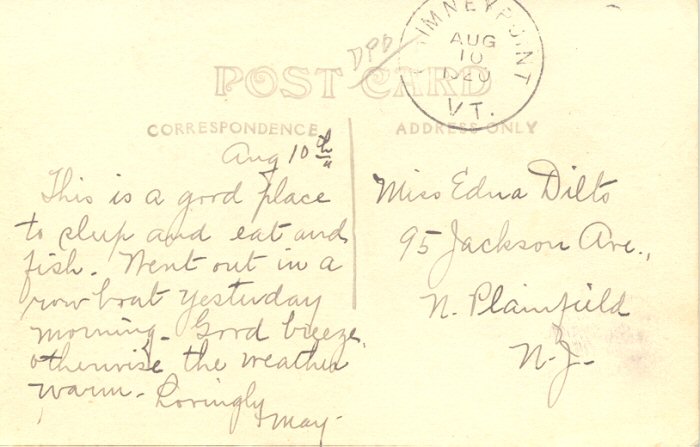 DPO
CHIMNEY POINT
AUG
10
1920
VT.
POST CARD
CORRESPONDENCE
ADDRESS ONLY
Aug 10th
This is a good place
to sleep and eat and
fish. Went out in a
row boat yesterday
morning. Good breeze,
otherwise the weather
warm. Lovingly
May.
Miss Edna Dilts
95 Jackson Ave.,
N. Plainfield
N.J.